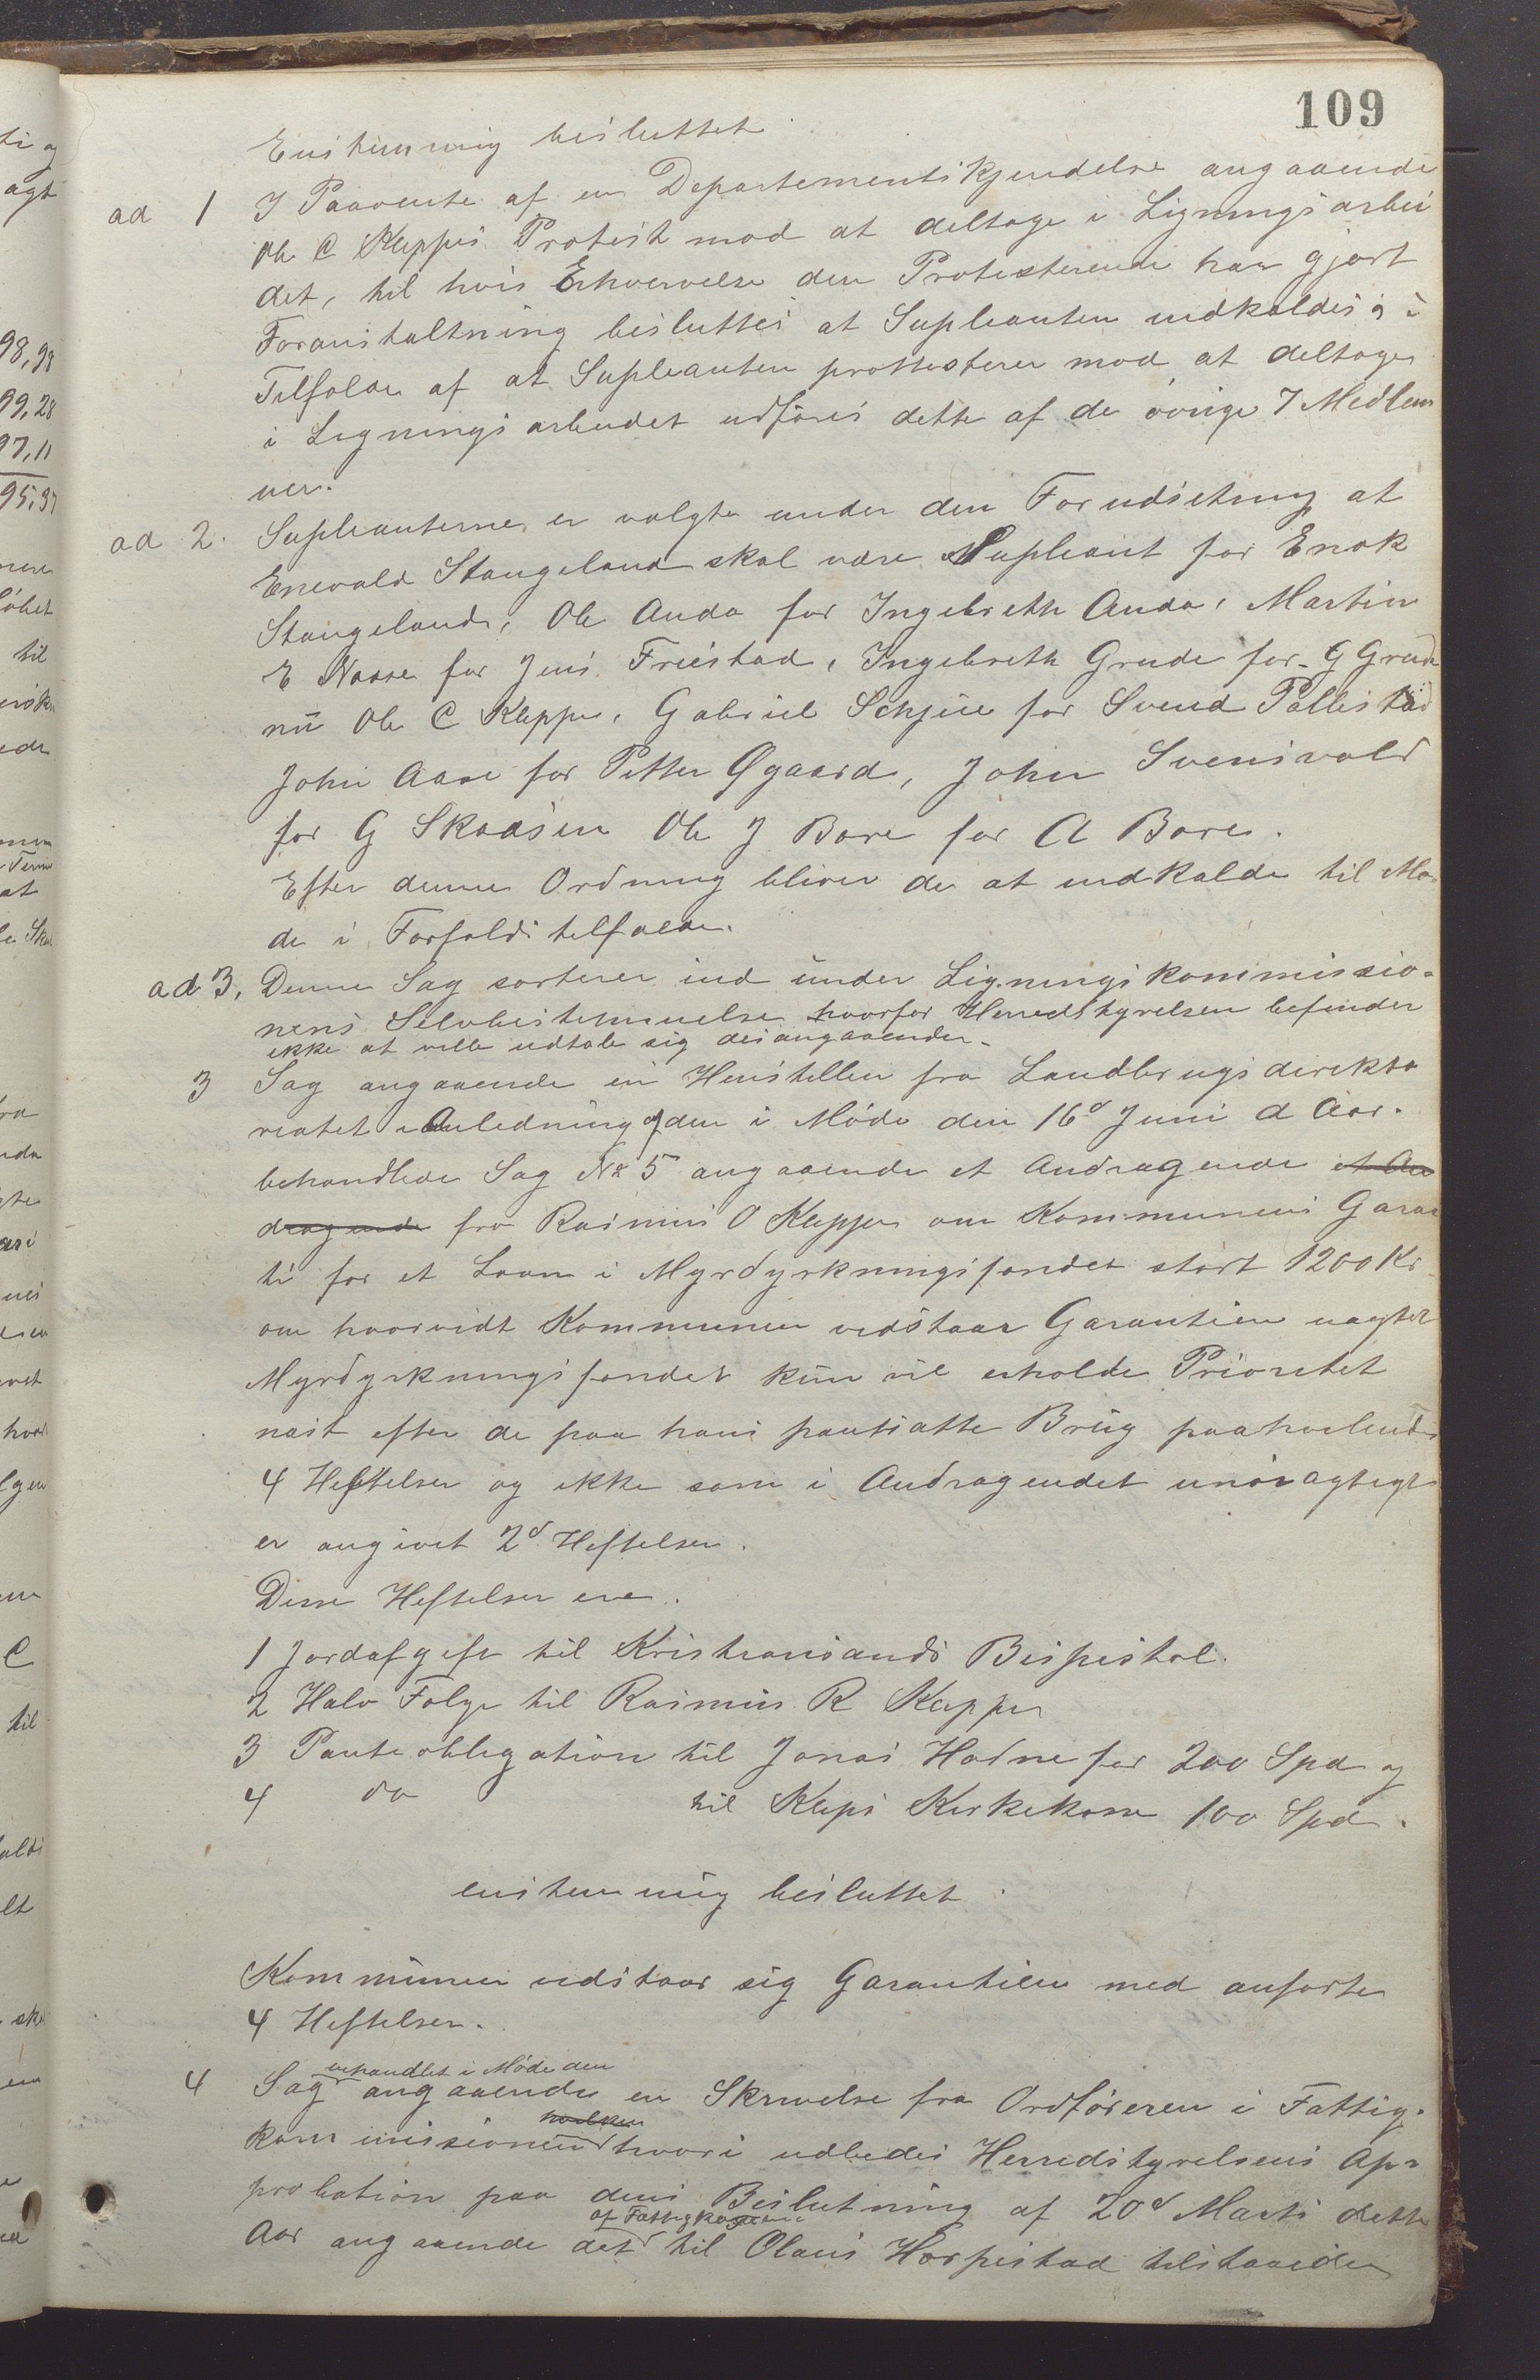 109
Enstemmig besluttet
ad 1 I Paavente af en Departementskjendelse angaaende
Ole C Kleppes Protest mod at deltage i Ligningsarbei
det, til hvis Erhvervelse den Protesterende har gjort
Foranstaltning besluttes at Supleanten indkaldes og i
Tilfælde af at Supleanten protesterer mod at deltage
i Ligningsarbeidet udføres dette af de øvrige 7 Medlem
mer.
ad 2. Supleanterne er valgte under den Forudsetning at
Enevald Stangeland skal være Supleant for Enok
Stangeland, Ole Anda for Ingebreth Anda, Martin
E Nasse for Jens Friestad, Ingebreth Grude for G Grude
nu Ole C Kleppe, Gabriel Schjie for Svend Pollestad
John Aase for Petter Øgaard, John Svensvold
for G Skaasen Ole J Bore for A Bore.
Efter denne Ordning bliver de at indkalde til Mø
de i Forfaldstilfælde.
ad 3, Denne Sag sorterer ind under Ligningskommissio-
nens Selvbestemmelse hvorfor Herredstyrelsen befinder
ikke at ville udtale sig desangaaende.
3 Sag angaaende en Henstillen fra Landbrugsdirekto
ratet i Anledning af den i Møde den 16d Juni d Aar.
behandlede Sag No 5 angaaende et Andragende et An
dragende fra Rasmus O Kleppe om Kommunens Garan
ti for et Laan i Myrdyrkningsfondet stort 1200 Kr
om hvorvidt Kommunen vedstaar Garantien uagtet
Myrdyrkningsfondet kun vil erholde Prioritet
næst efter de paa hans pantsatte Brug paahvilende
4 Heftelser og ikke som i Andragendet unøiagtigt
er angivet 2d Heftelser.
Disse Heftelser ere.
1 Jordafgift til Kristiansands Bispestol.
2 Halv Følge til Rasmus R Kleppe
3 Panteobligation til Jonas Hodne for 200 Spd og
4 do til Kleps Kirkekasse 100 Spd.
enstemmig besluttet
Kommunen vedstaar sig Garantien med anførte
4 Heftelser.
behandlet i Møde den
4 Sag angaaende en Skrivelse fra Ordføreren i Fattig-
hvilken
kommissionen hvori udbedes Herredstyrelsens Ap-
probation paa dens Beslutning af 20d Marts dette
af Fattigkassen
Aar angaaende det til Olaus Horpestad tilstaaede